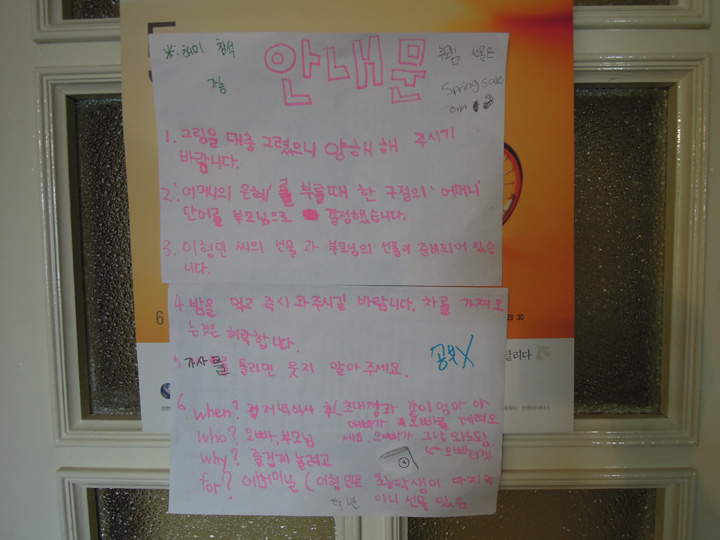 5
※. 해미 참석
안내문
부모님 선물은
Spring Sale
1. 그림을 대충 그렸으니 양해해 주시기
바랍니다.
2. '어머니의 은혜'를 부를때 한 구절의 '어머니'
단어를 부모님으로 결정했습니다.
3. 이형민 씨의 선물과 부모님의 선물이 준비되어 있습
니다.
6
29 30
4 밥을 먹고 즉시 와주시길 바랍니다. 차를 가져오
는것은 허락합니다.
5 가사를 틀리면 웃지 말아주세요.
공부X
달리다
6. When? 저녁식사 후 (초대장과 같이 엄마 아
빠가 오빠를 데려오
Who? 오빠, 부모님
세요. 오빠가 그냥 와도됨
Why? 즐겁게 놀려고
for? 어버이날 (이형민은 초등학생이 마지막
학년 이니 선물 있음